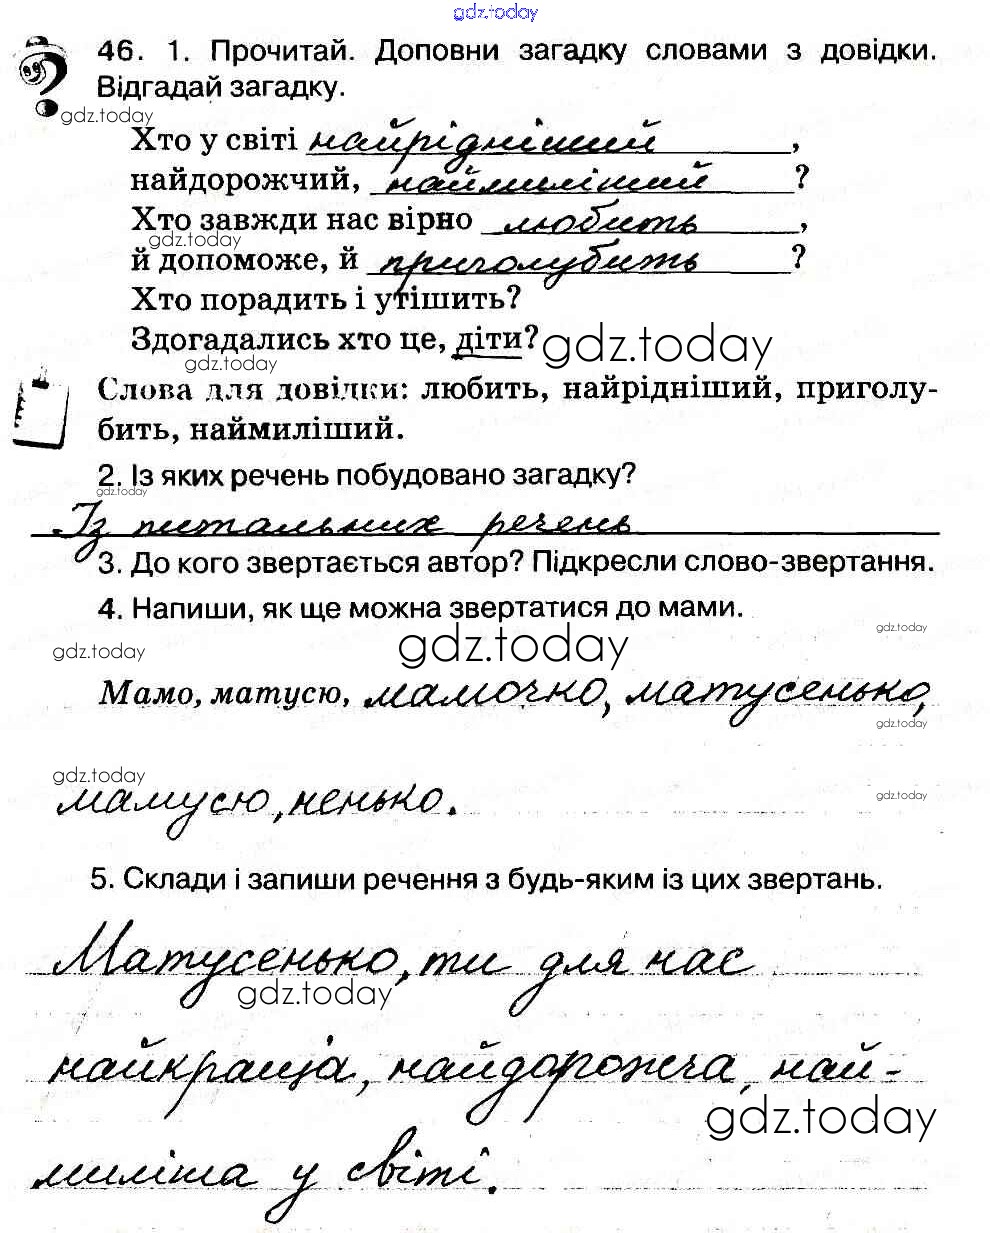 gdz.today
46. 1. Прочитай. Доповни загадку словами з довідки.
Відгадай загадку.
gdz.today
Хто у світі найрідніший,
найдорожчий, наймиліший?
Хто завжди нас вірно любить,
gdz.today
й допоможе, й приголубить?
Хто порадить і утішить?
Здогадались хто це, діти?
gdz.today
gdz.today
Слова для довідки: любить, найрідніший, приголу-
бить, наймиліший.
2. Із яких речень побудовано загадку?
gdz.today
Із питальних речень
3. До кого звертається автор? Підкресли слово-звертання.
4. Напиши, як ще можна звертатися до мами.
gdz.today
gdz.today
gdz.today
Мамо, матусю, мамочко, матусенько,
gdz.today
gdz.today
мамусю, ненько.
gdz.today
5. Склади і запиши речення з будь-яким із цих звертань.
Матусенько, ти для нас
gdz.today
найкраща, найдорожча, най-
gdz.today
миліша у світі.